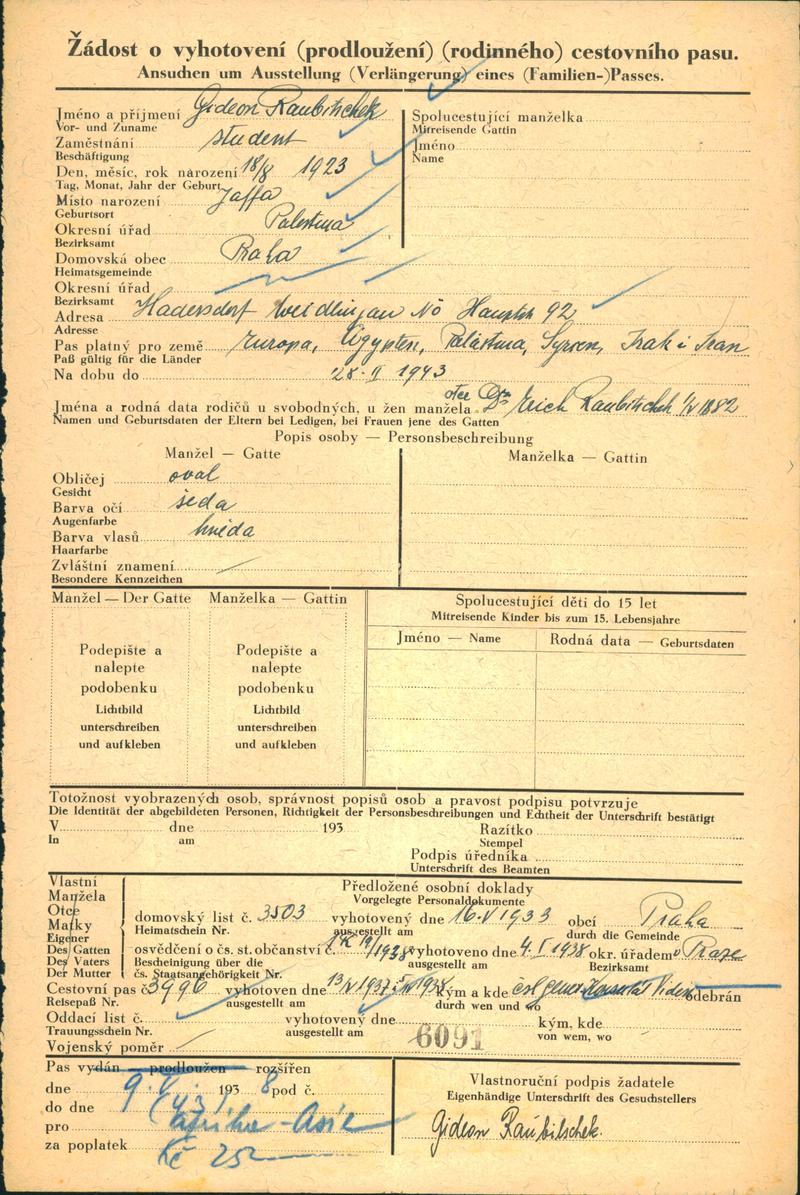 Žádost o vyhotovení (prodloužení) (rodinného) cestovního pasu.
Ansuchen um Ausstellung (Verlängerung) eines (Familien-)Passes.
Jméno a příjmení Gideon Raubitschek
Vor- und Zuname
Zaměstnání student
Beschäftigung
Den, měsíc, rok narození 18/8 1923
Tag, Monat, Jahr der Geburt
Místo narození Jaffa
Geburtsort
Okresní úřad Palestina
Bezirksamt
Domovská obec Praha
Heimatsgemeinde
Okresní úřad
Bezirksamt
Spolucestující manželka
Mitreisende Gattin
Jméno
Name
Adresa Hadersdorf Weidlingau NÖ Hauptstr 92
Adresse
Pas platný pro země Europa, Ägypten, Palästina, Syrien, Irak i Iran
Paß gültig für die Länder
Na dobu do 28. II 1943
Jména a rodná data rodičů u svobodných, u žen manžela otec Dr Erich Raubitschek 1882
Namen und Geburtsdaten der Eltern bei Ledigen, bei Frauen jene des Gatten
Popis osoby — Personsbeschreibung
Manžel — Gatte
Manželka — Gattin
Obličej oval
Gesicht
Barva očí šedá
Augenfarbe
Barva vlasů hnědá
Haarfarbe
Zvláštní znamení
Besondere Kennzeichen
Manžel — Der Gatte
Manželka — Gattin
Podepište a
nalepte
podobenku
Lichtbild
unterschreiben
und aufkleben
Podepište a
nalepte
podobenku
Lichtbild
unterschreiben
und aufkleben
Spolucestující děti do 15 let
Mitreisende Kinder bis zum 15. Lebensjahre
Jméno — Name
Rodná data — Geburtsdaten
Totožnost vyobrazených osob, správnost popisů osob a pravost podpisu potvrzuje
Die Identität der abgebildeten Personen, Richtigkeit der Personsbeschreibungen und Echtheit der Unterschrift bestätigt
V dne 193 Razítko
In am Stempel
Podpis úředníka
Unterschrift des Beamten
Vlastní
Manžela
Otce
Matky
Eigener
Des Gatten
Des Vaters
Der Mutter
Předložené osobní doklady
Vorgelegte Personaldokumente
domovský list č. 3503 vyhotovený dne 16.V 1933 obcí Praha
Heimatschein Nr. ausgestellt am durch die Gemeinde
osvědčení o čs. st. občanství č. 19/1938 vyhotoveno dne 4. I 1938 okr. úřadem v Praze
Bescheinigung über die čs. Staatsangehörigkeit Nr. ausgestellt am Bezirksamt
Cestovní pas č. 3996 vyhotoven dne 1937 1938 kým a kde čsl gener. Konsulát Vídeň odebrán
Reisepaß Nr. ausgestellt am durch wen und wo
Oddací list č. vyhotovený dne kým, kde
Trauungsschein Nr. ausgestellt am von wem, wo
Vojenský poměr 6091
Pas vydán prodloužen rozšířen
dne 9. V. 1938 pod č.
do dne
pro Afrika - Asie
za poplatek Kč 25
Vlastnoruční podpis žadatele
Eigenhändige Unterschrift des Gesuchstellers
Gideon Raubitschek.